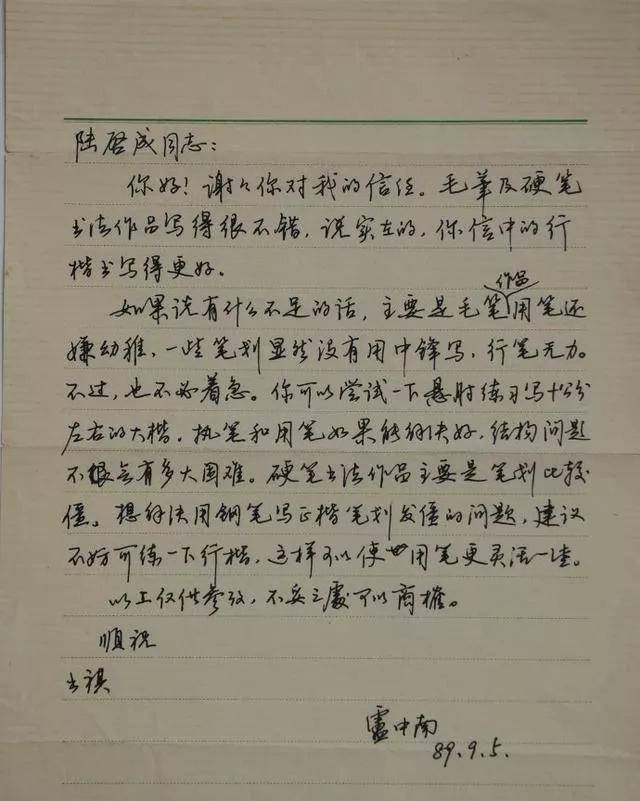 陆启成同志：
你好！谢々你对我的信任。毛筆及硬笔
书法作品写得很不错，说实在的，你信中的行
楷书写得更好。
作品
如果说有什么不足的话，主要是毛笔用笔还
嫌幼稚，一些笔划显然没有用中锋写，行笔无力。
不过，也不必着急。你可以尝试一下悬肘练习写十公分
左右的大楷。执笔和用笔如果能解决好，结构问题
不会有多大困难。硬笔书法作品主要是笔划比较
僵。想解决用钢笔写正楷笔划发僵的问题，建议
不妨可练一下行楷，这样可以使用笔更灵活一些。
以上仅供参考，不妥之處可以商榷。
顺祝
书祺
盧中南
89.9.5.